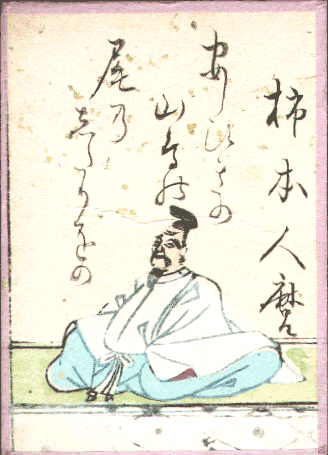 柿本人麿
安しひきの
山鳥の
尾乃
志たりをの